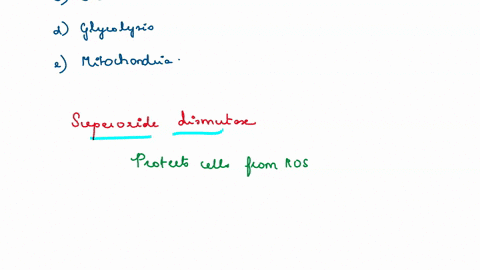 d) Glycolysis
e) Mitochondria.
Superoxide dismutase
Protects cells from ROS